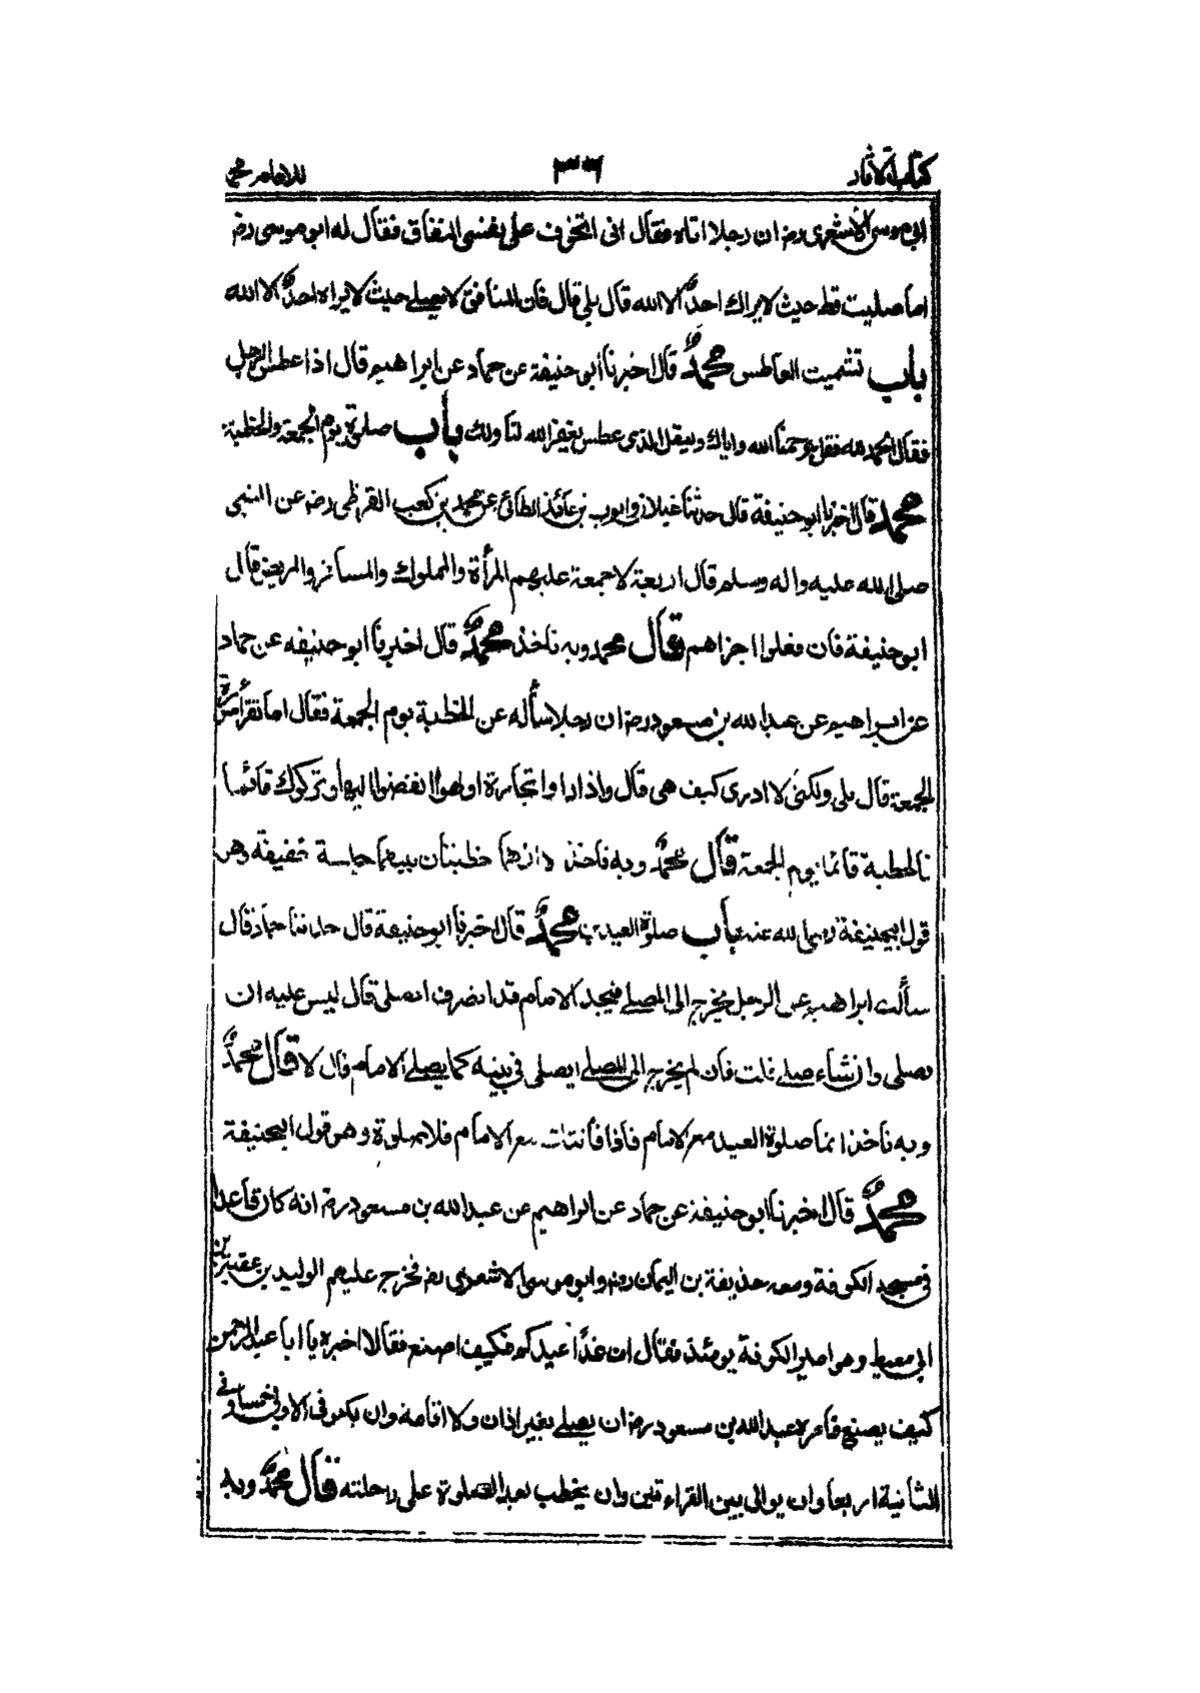 كتاب الآثار ٣٦ للامام محمد
ابي موسى الاشعري رض ان رجلا اتاه فقال انى اتخوف على نفسى النفاق فقال له ابو موسى رض
اما صليت قط حيث لا يراك احدٌ الا الله قال بلى قال فان المنافق لا يصلے حيث لا يراه احدٌ الا الله
باب تشميت العاطس محمدٌ قال اخبرنا أبو حنيفة عن حماد عن ابراهيم قال اذا عطس الرجل
فقال الحمد لله فقل يرحمنا الله واياك وليقل الذى عطس يغفر الله لنا ولك باب صلوة يوم الجمعة والخطبة
محمد قال اخبرنا ابو حنيفة قال حدثنا غيلان وايوب بن عائذ الطائى عن محمد بن كعب القرظى رض عن النبى
صلى الله عليه واله وسلم قال اربعة لا جمعة عليهم المرأة والمملوك والمسافر والمريض قال
ابو حنيفة فان فعلوا اجزاهم قال محمد وبه ناخذ محمدٌ قال اخبرنا ابو حنيفه عن حماد
عن ابراهيم عن عبد الله بن مسعود رض ان رجلا سأله عن الخطبة يوم الجمعة فقال اما تقرأ سورة
الجمعة قال بلى ولكنى لا ادرى كيف هى قال واذا راوا تجارة او لهوا انفضوا اليها وتركوك قائما
فالخطبة قائما يوم الجمعة قال محمدٌ وبه ناخذ الا انهما خطبتان بينهما جلسة خفيفة وهو
قول ابيحنيفة رضى الله عنه باب صلوة العيدين محمدٌ قال اخبرنا ابو حنيفة قال حدثنا حماد قال
سألت ابراهيم عن الرجل يخرج الى المصلے فيجد الامام قد انصرف ايصلى قال ليس عليه ان
يصلى وان شاء صلے قلت فان لم يخرج الى المصلے ايصلى فى بيته كما يصلے الامام قال لا قال محمدٌ
وبه ناخذ انما صلوة العيد مع الامام فاذا فاتتك مع الامام فلا صلوة وهو قول ابيحنيفة
محمدٌ قال اخبرنا ابو حنيفة عن حماد عن ابراهيم عن عبد الله بن مسعود رض انه كان قاعدا
فى مسجد الكوفة ومعه حذيفة بن اليمان رض وابو موسى الاشعرى رض فخرج عليهم الوليد بن عقبة بن
ابى معيط وهو امير الكوفة يومئذ فقال ان غدًا عيدكم فكيف اصنع فقالا اخبره يا ابا عبد الرحمن
كيف يصنع فامره عبد الله بن مسعود رض ان يصلے بغير اذان ولا اقامة وان يكبر فى الاولى خمسا وفى
الثانية اربعا وان يوالى بين القراءتين وان يخطب بعد الصلوة على راحلته قال محمدٌ وبه